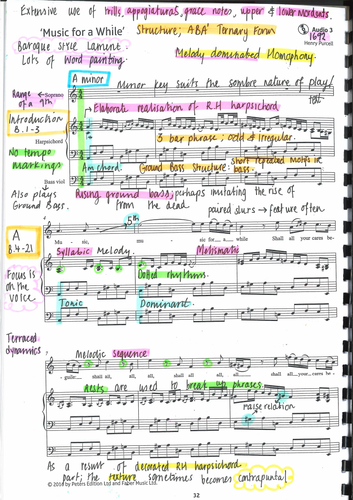 Extensive use of trills, appogiaturas, grace notes, upper & lower mordents.
'Music for a While'
Structure; ABA' Ternary Form
Audio 3
1692
Henry Purcell
Baroque style Lament.
Lots of word painting.
Melody dominated Homophony.
A minor
Minor key suits the sombre nature of play/
text
Range
of a 9th
Soprano
Elaborate realisation of R.H harpsichord
Introduction
B. 1-3
Harpsichord
3 bar phrase; odd & irregular.
No tempo
markings
Am chord.
Ground Bass Structure:
Short repeated motifs in
bass.
Bass viol
Also plays
Ground Bass.
Rising ground bass; perhaps imitating the rise of
from the dead
paired slurs → feature often
5th
A
B.4-21
Mu - sic, mu - sic for a while Shall all your cares be-
Syllabic Melody.
Melismatic
Focus is
on the
voice
Dotted rhythms.
Tonic
Dominant.
Terraced
dynamics
Melodic sequence
- guile: shall all, all, all, shall all, all, all, shall all your cares be-
Rests are used to break up phrases.
False relation
© 2016 by Peters Edition Ltd and Faber Music Ltd.
32
As a result of decorated RH harpsichord
part; the texture sometimes becomes contrapuntal